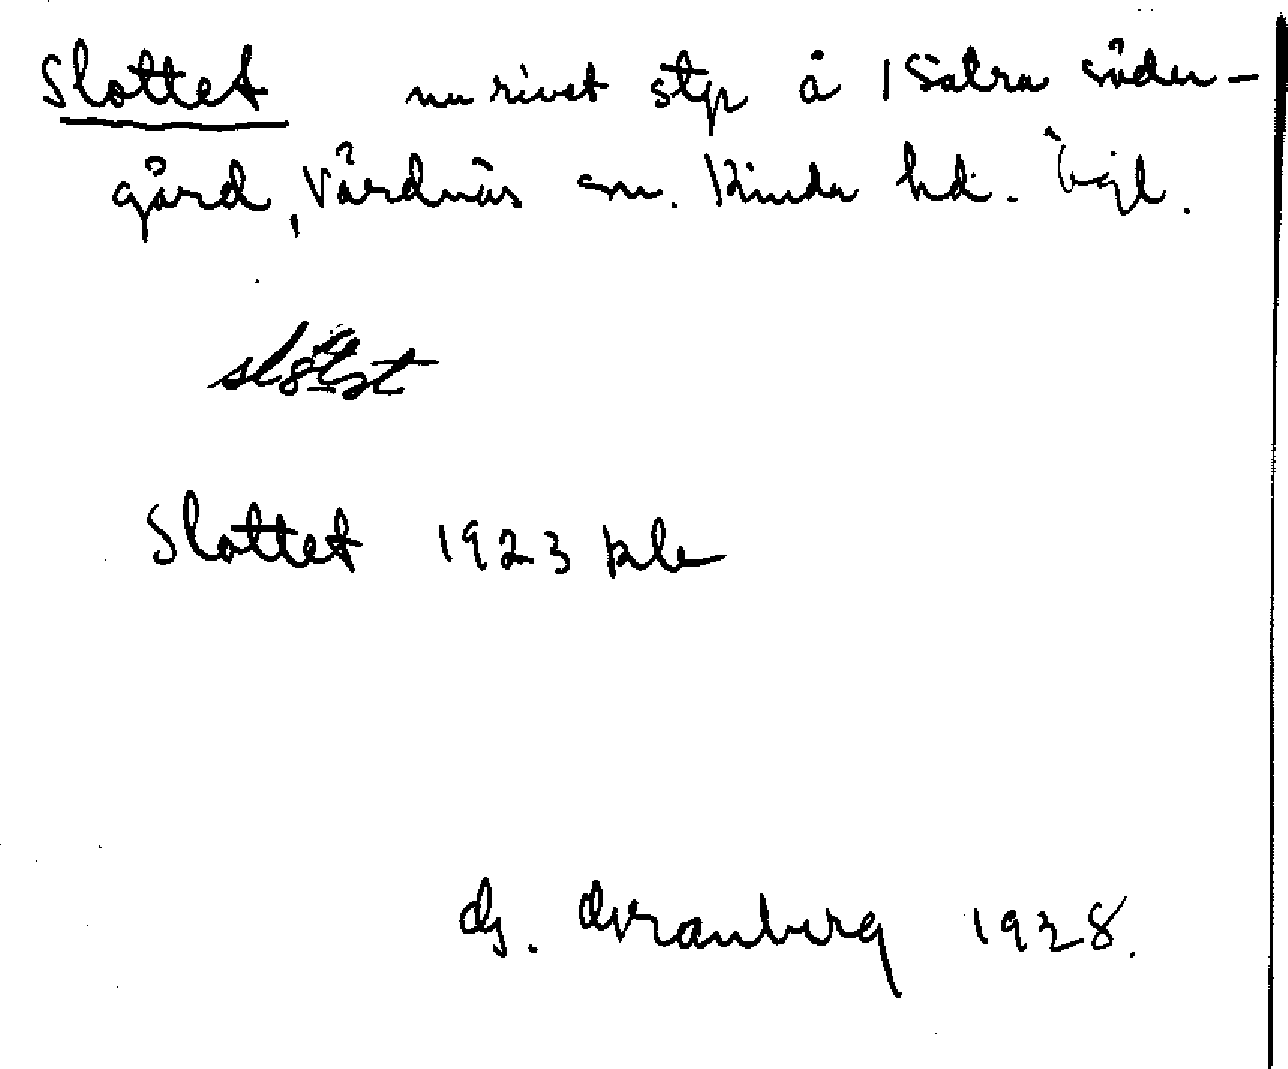 Slottet nu rivet stp å 1 Sätra söder-
gård, Vårdnäs sn. Kinda hd. Ögl.
Slottet 1923 kle
G. Franberg 1928.